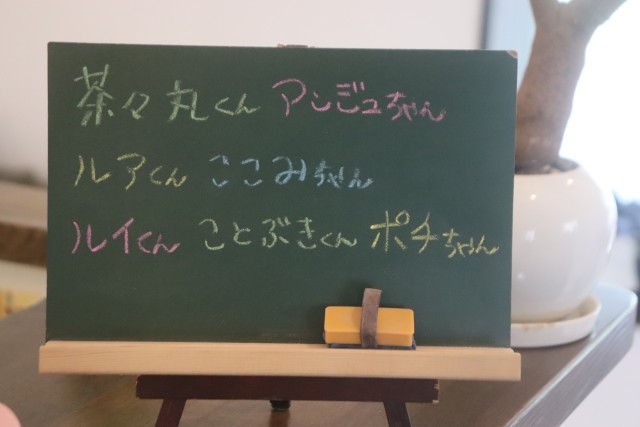 茶々丸くん アンジュちゃん
ルアくん ここみちゃん
ルイくん ことぶきくん ポチちゃん